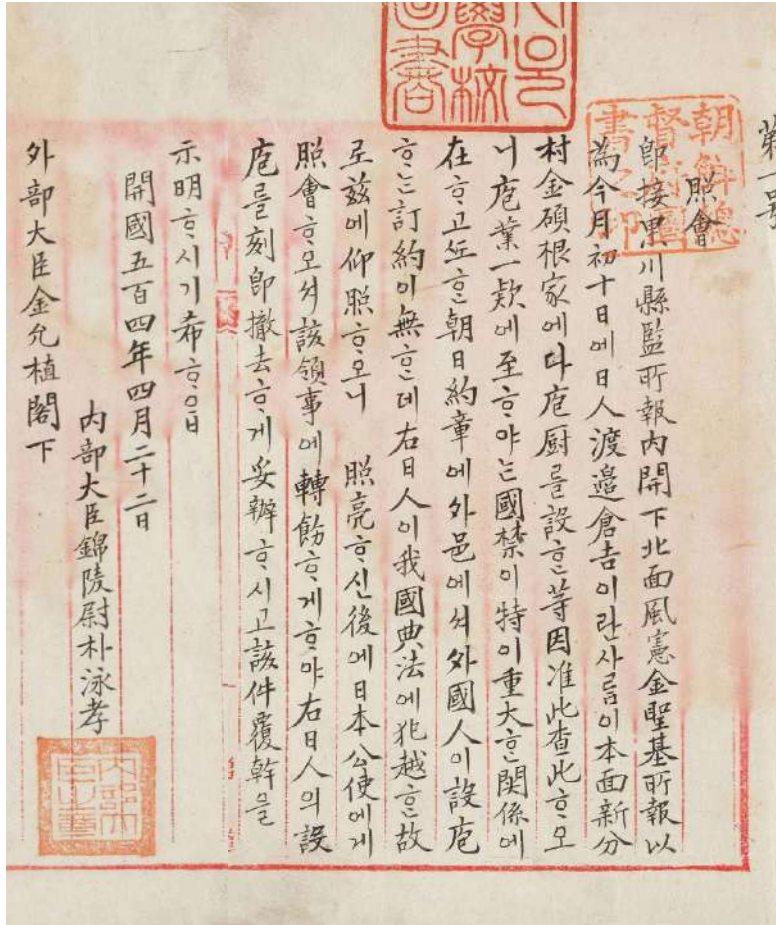 第一号
照會
卽接思川縣監所報內開下北面風憲金聖基所報以
為今月初十日에日人渡邉倉吉이란사ᄅᆞᆷ이本面新分
村金碩根家에다庖厨를設ᄒᆞᆫ等因准此查此ᄒᆞ오
니庖業一欵에至ᄒᆞ야ᄂᆞᆫ國禁이特이重大ᄒᆞᆫ関係에
在ᄒᆞ고ᄯᅩᄒᆞᆫ朝日約章에外邑에셔外國人이設庖
ᄒᆞᄂᆞᆫ訂約이無ᄒᆞᆫ데右日人이我國典法에犯越ᄒᆞᆫ故
로玆에仰照ᄒᆞ오니 照亮ᄒᆞ신後에日本公使에게
照會ᄒᆞ오셔該領事에轉飭ᄒᆞ게ᄒᆞ야右日人의設
庖를刻卽撤去ᄒᆞ게妥辦ᄒᆞ시고該件覆幹을
示明ᄒᆞ시기希ᄒᆞᄋᆞᆸ
開國五百四年四月二十二日
內部大臣錦陵尉朴泳孝
外部大臣金允植閣下
朝鮮總
督府圖
書之印
內部大
臣之章